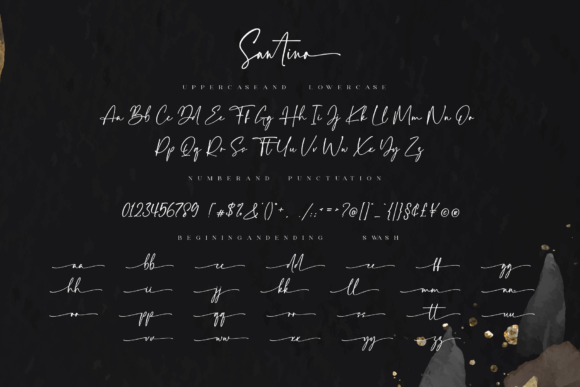 Santino
UPPERCASEAND LOWERCASE
Aa Bb Cc Dd Ee Ff Gg Hh Ii Jj Kk Ll Mm Nn Oo
Pp Qq Rr Ss Tt Uu Vv Ww Xx Yy Zz
NUMBERAND PUNCTUATION
0123456789
BEGININGANDENDING SWASH
aa bb cc dd ee ff gg
hh ii jj kk ll mm nn
oo pp qq rr ss tt uu
vv ww xx yy zz